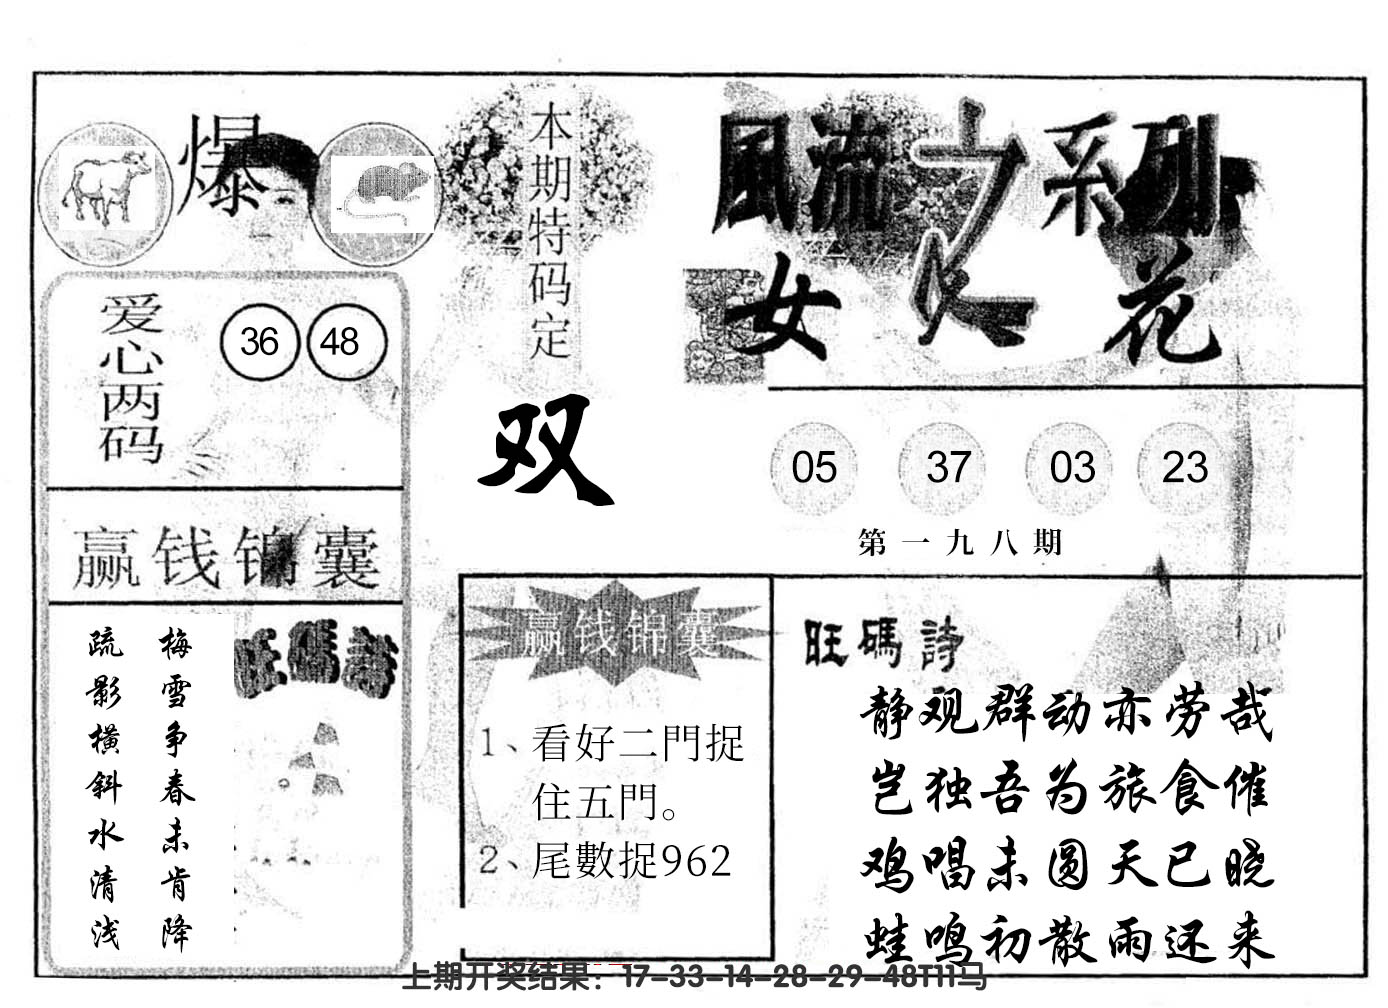 爆
本期特码定
双
風流之系列
女人花
爱心两码
36 48
05 37 03 23
第一九八期
赢钱锦囊
旺碼詩
梅雪争春未肯降
疏影横斜水清浅
赢钱锦囊
1、看好二門捉
住五門。
2、尾數捉962
旺碼詩
静观群动亦劳哉
岂独吾为旅食催
鸡唱未圆天已晓
蛙鸣初散雨还来
上期开奖结果：17-33-14-28-29-48T11马